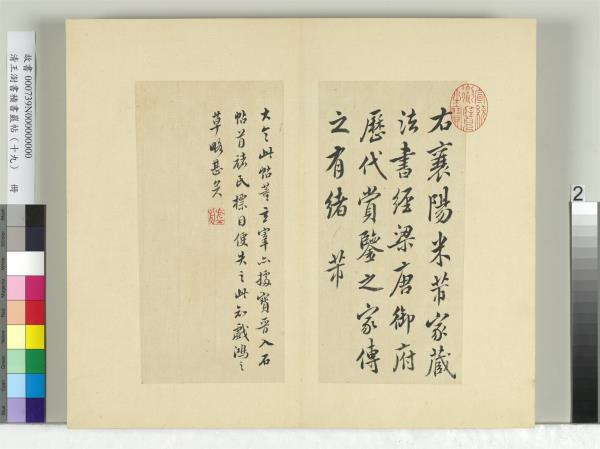 右襄陽米芾家藏
法書經梁唐御府
歷代賞鑒之家傳
之有緒 芾
大令此帖董玄宰亦據寶晉入石
帖首禇氏標目便失之此知戲鴻之
草略甚矣
故書 000739N00000000
清王澍書積書巖帖(十九) 冊
2